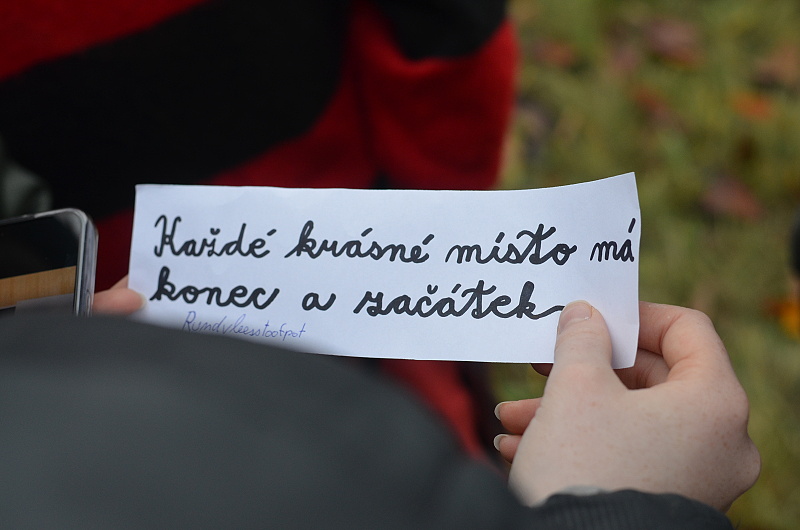 Každé krásné místo má
konec a začátek
Rundvleesstoofpot